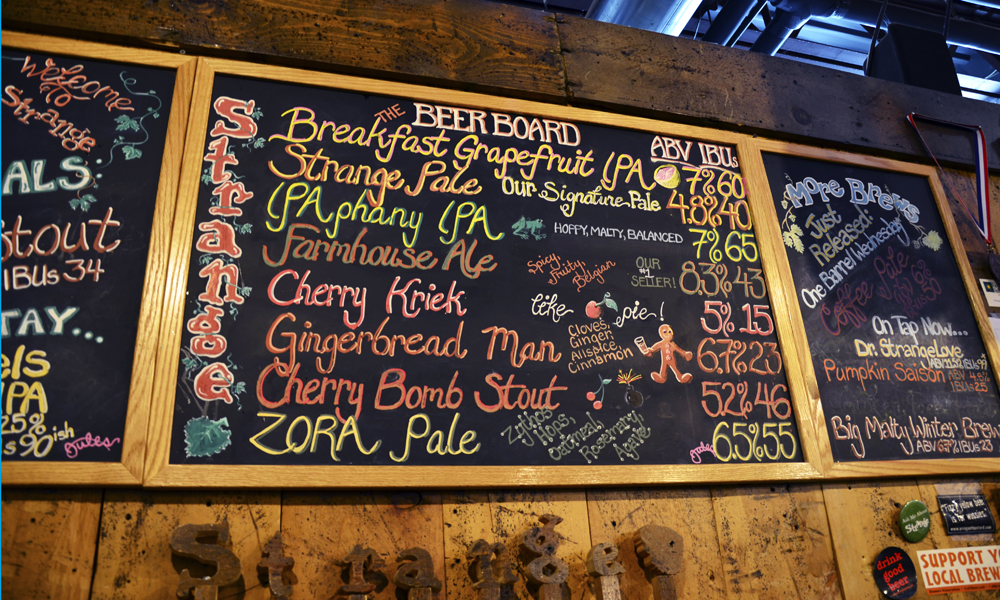 Welcome
to
Strange
ALS:
Stout
IBUs 34
TAY...
els
PA
25%
s 90 ish
Strange
THE BEER BOARD
ABV IBUs
Breakfast Grapefruit IPA 7% 60
Strange Pale Our Signature Pale 4.8% 40
IPAphany IPA HOPPY, MALTY, BALANCED 7% 65
Farmhouse Ale Spicy Fruity Belgian OUR #1 SELLER! 8.3% 43
Cherry Kriek like pie! 5% 15
Gingerbread Man Cloves, Ginger, Allspice, Cinnamon 6.7% 23
Cherry Bomb Stout 5.2% 46
ZORA Pale Oatmeal, Rosemary, Agave 6.5% 55
More Brews
Just
Released!
One Barrel Wednesday
Coffee
On Tap Now...
Dr. StrangeLove
Pumpkin Saison
Big Malty Winter Brew
ABV 6.7% IBUs 23
Strange
Strange
drink
good
beer
SUPPORT Y
LOCAL BREW